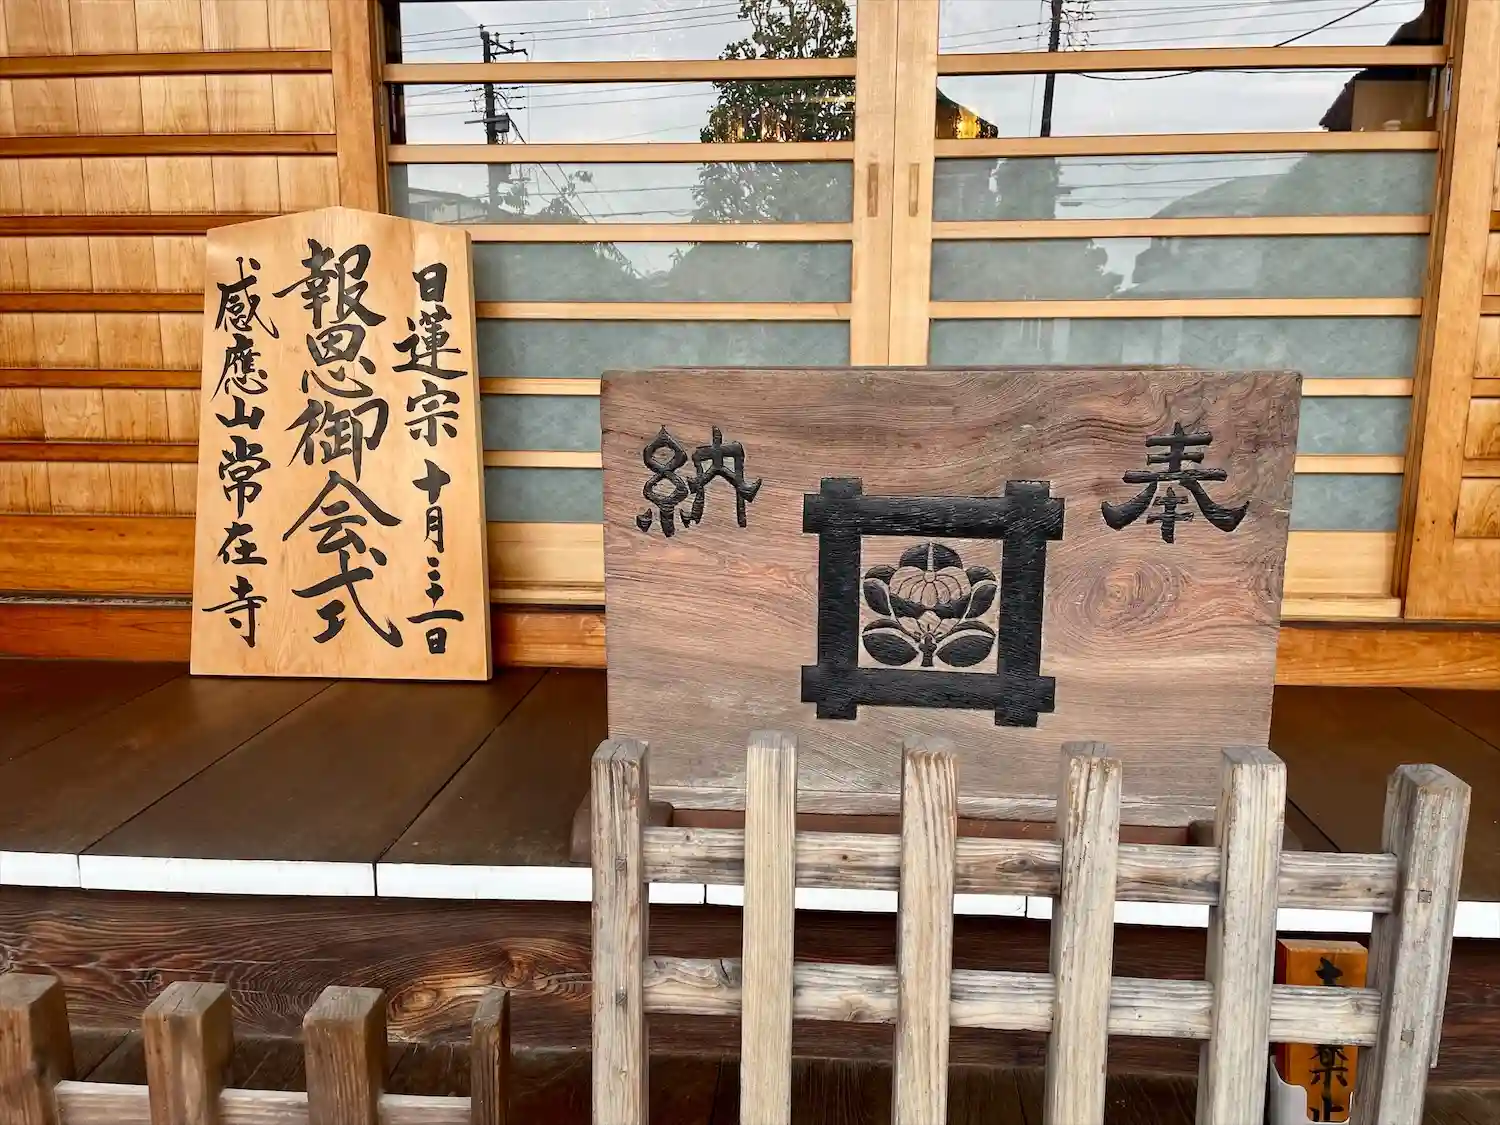 日蓮宗 十月三十一日
報恩御会式
感應山常在寺
奉納
禁止